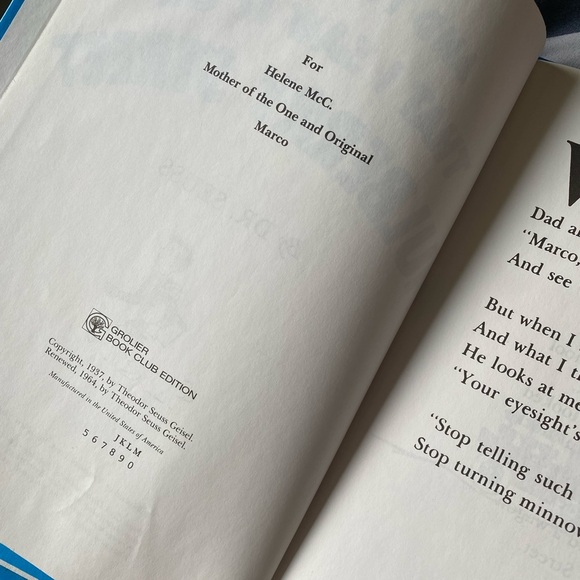 For
Helene McC.
Mother of the One and Original
Marco
GROLIER
BOOK CLUB EDITION
Copyright, 1937, by Theodor Seuss Geisel.
Renewed, 1964, by Theodor Seuss Geisel.
Manufactured in the United States of America
JKLM
567890
W
Dad al
"Marco,
And see
But when I
And what I th
He looks at me
"Your eyesight's
"Stop telling such
Stop turning minnow